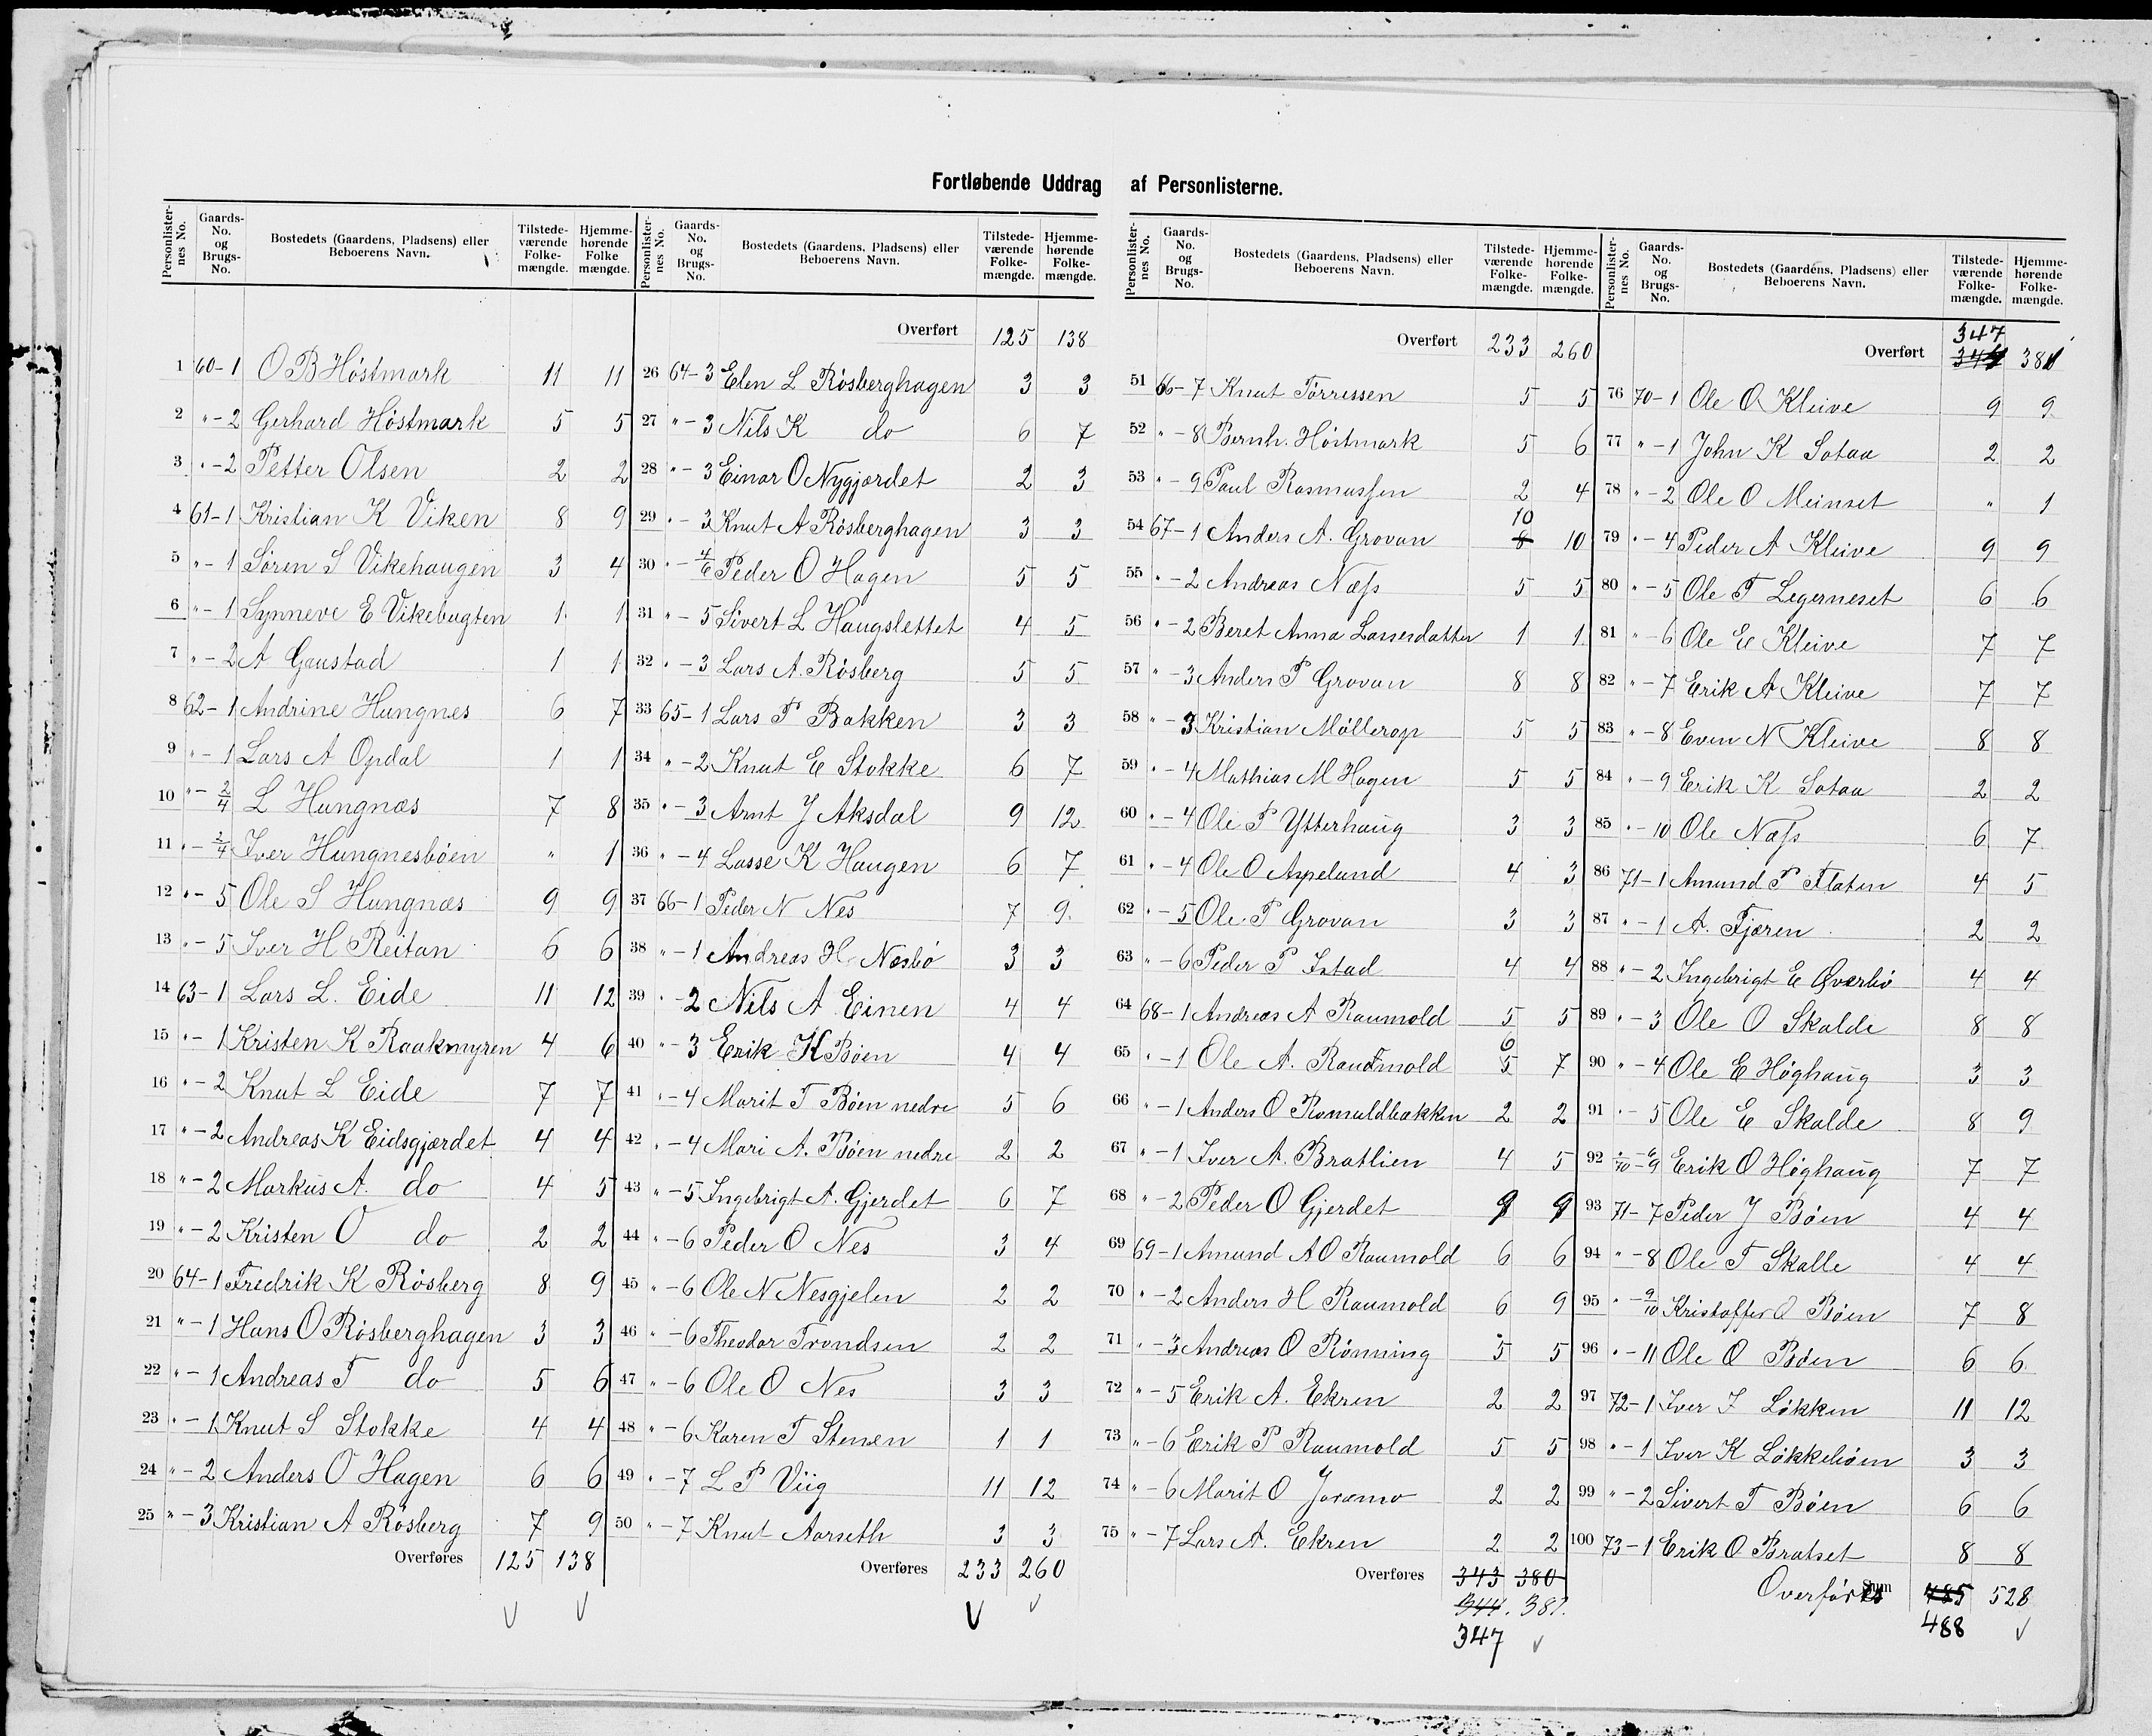 Fortløbende Uddrag af Personlisterne.
Personlister-nes No. Gaards-No. og Brugs-No. Bostedets (Gaardens, Pladsens) eller Beboerens Navn. Tilstede-værende Folke-mængde. Hjemme-hørende Folke mængde.
1 60-1 O B Höstmark 11 11
2 "-2 Gerhard Höstmark 5 5
3 "-2 Petter Olsen 2 2
4 61-1 Kristian K Viken 8 9
5 "-1 Sören S Vikehaugen 3 4
6 "-1 Synneve E Vikebugten 1 1
7 "-2 A Gaustad 1 1
8 62-1 Andrine Hungnes 6 7
9 "-1 Lars A Opdal 1 1
10 "-2/4 L Hungnæs 7 8
11 "-2/4 Iver Hungnesböen " 1
12 "-5 Ole S Hungnæs 9 9
13 "-5 Iver H Reitan 6 6
14 63-1 Lars L. Eide 11 12
15 "-1 Kristen K Raakmyren 4 6
16 "-2 Knut L Eide 7 7
17 "-2 Andreas K Eidsgjærdet 4 4
18 "-2 Markus A. do 4 5
19 "-2 Kristen O do 2 2
20 64-1 Fredrik K Rösberg 8 9
21 "-1 Hans O Rösberghagen 3 3
22 "-1 Andreas T do 5 6
23 "-1 Knut S Stokke 4 4
24 "-2 Anders O Hagen 6 6
25 "-3 Kristian A Rösberg 7 9
Overføres 125 138
Personlister-nes No. Gaards-No. og Brugs-No. Bostedets (Gaardens, Pladsens) eller Beboerens Navn. Tilstede-værende Folke-mængde. Hjemme-hørende Folke-mængde.
Overført 125 138
26 64-3 Elen L Rösberghagen 3 3
27 "-3 Nils K do 6 7
28 "-3 Einar O Nygjærdet 2 3
29 "-3 Knut A Rösberghagen 3 3
30 "-4/6 Peder O Hagen 5 5
31 "-5 Sivert L Haugslettet 4 5
32 "-3 Lars A. Rösberg 5 5
33 65-1 Lars P Bakken 3 3
34 "-2 Knut E Stokke 6 7
35 "-3 Arnt J Aksdal 9 12
36 "-4 Lasse K Haugen 6 7
37 66-1 Peder N Nes 7 9
38 "-1 Andreas H Næsbö 3 3
39 "-2 Nils A Einen 4 4
40 "-3 Erik K Böen 4 4
41 "-4 Marit T Böen nedre 5 6
42 "-4 Mari A. Böen nedre 2 2
43 "-5 Ingebrigt A. Gjerdet 6 7
44 "-6 Peder O Nes 3 4
45 "-6 Ole N Nesgjelen 2 2
46 "-6 Theodor Trondsen 2 2
47 "-6 Ole O Nes 3 3
48 "-6 Karen T Stenen 1 1
49 "-7 L P Viig 11 12
50 "-7 Knut Aarseth 3 3
Overføres 233 260
Personlister-nes No. Gaards-No. og Brugs-No. Bostedets (Gaardens, Pladsens) eller Beboerens Navn. Tilstede-værende Folke-mængde. Hjemme-hørende Folke-mængde.
Overført 233 260
51 66-7 Knut Törressen 5 5
52 "-8 Bernh. Höstmark 5 6
53 "-9 Paul Rasmussen 2 4
54 67-1 Anders A. Grovan 8 10 10
55 "-2 Andreas Næss 5 5
56 "-2 Beret Anna Larsesdatter 1 1
57 "-3 Anders P Grovan 8 8
58 "-3 Kristian Möllerop 5 5
59 "-4 Mathias M Hagen 5 5
60 "-4 Ole P Ytterhaug 3 3
61 "-4 Ole O Aspelund 4 3
62 "-5 Ole P Grovan 3 3
63 "-6 Peder P Istad 4 4
64 68-1 Andreas A Raumold 5 5
65 "-1 Ole A. Raudmold 5 6 7
66 "-1 Anders O Romuldbakken 2 2
67 "-1 Iver A. Bratlien 4 5
68 "-2 Peder O Gjerdet 9 9
69 69-1 Amund A O Raumold 6 6
70 "-2 Anders H Raumold 6 9
71 "-3 Andreas O Rönning 5 5
72 "-5 Erik A. Ekren 2 2
73 "-6 Erik P Raumold 5 5
74 "-6 Marit O Joramo 2 2
75 "-7 Lars A. Ekren 2 2
Overføres 343 380
344. 381.
347
Personlister-nes No. Gaards-No. og Brugs-No. Bostedets (Gaardens, Pladsens) eller Beboerens Navn. Tilstede-værende Folke-mængde. Hjemme-hørende Folke-mængde.
347
Overført 344 381
76 70-1 Ole O Kleive 9 9
77 "-1 John K Sotaa 2 2
78 "-2 Ole O Meinset " 1
79 "-4 Peder A Kleive 9 9
80 "-5 Ole T Legerneset 6 6
81 "-6 Ole E Kleive 7 7
82 "-7 Erik A Kleive 7 7
83 "-8 Even N Kleive 8 8
84 "-9 Erik K Sotaa 2 2
85 "-10 Ole Næss 6 7
86 71-1 Amund P Flaten 4 5
87 "-1 A. Fjæren 2 2
88 "-2 Ingebrigt E Øverbö 4 4
89 "-3 Ole O Skalde 8 8
90 "-4 Ole E Höghaug 3 3
91 "-5 Ole E Skalde 8 9
92 "/70-6/9 Erik O Höghaug 7 7
93 71-7 Peder J Böen 4 4
94 "-8 Ole T Skalle 4 4
95 "-9/10 Kristoffer O Böen 7 8
96 "-11 Ole O Böen 6 6
97 72-1 Iver I Lökken 11 12
98 "-1 Iver K Lökkeböen 3 3
99 "-2 Sivert T Böen 6 6
100 73-1 Erik O Bratset 8 8
Sum Overføres 485 528
488